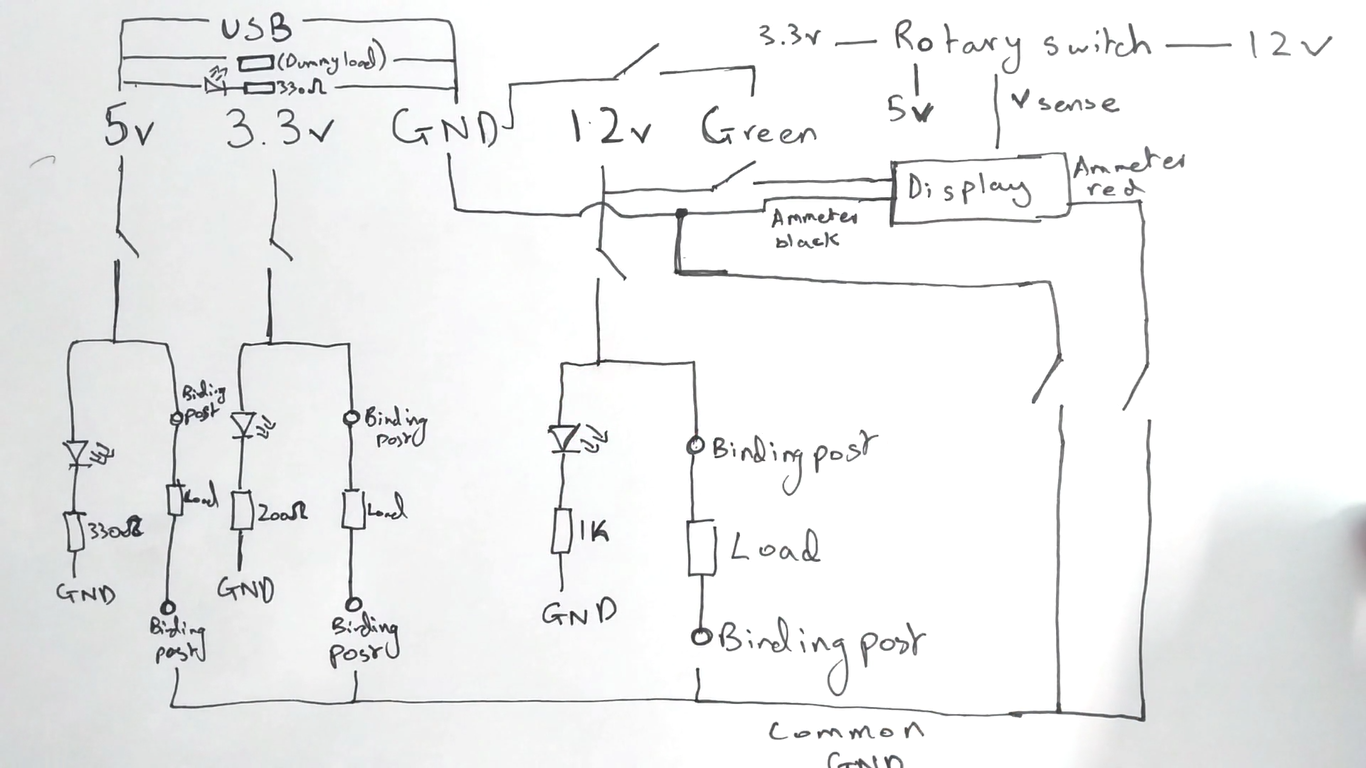 USB
(Dummy load)
330Ω
3.3v — Rotary switch — 12v
5v
v sense
5v 3.3v GND 12v Green
Display
Ammeter
red
Ammeter
black
Binding
post
Binding
post
Binding post
Load
Load
330Ω
200Ω
1K
Load
GND
GND
GND
Binding
post
Binding
post
Binding post
Common
GND